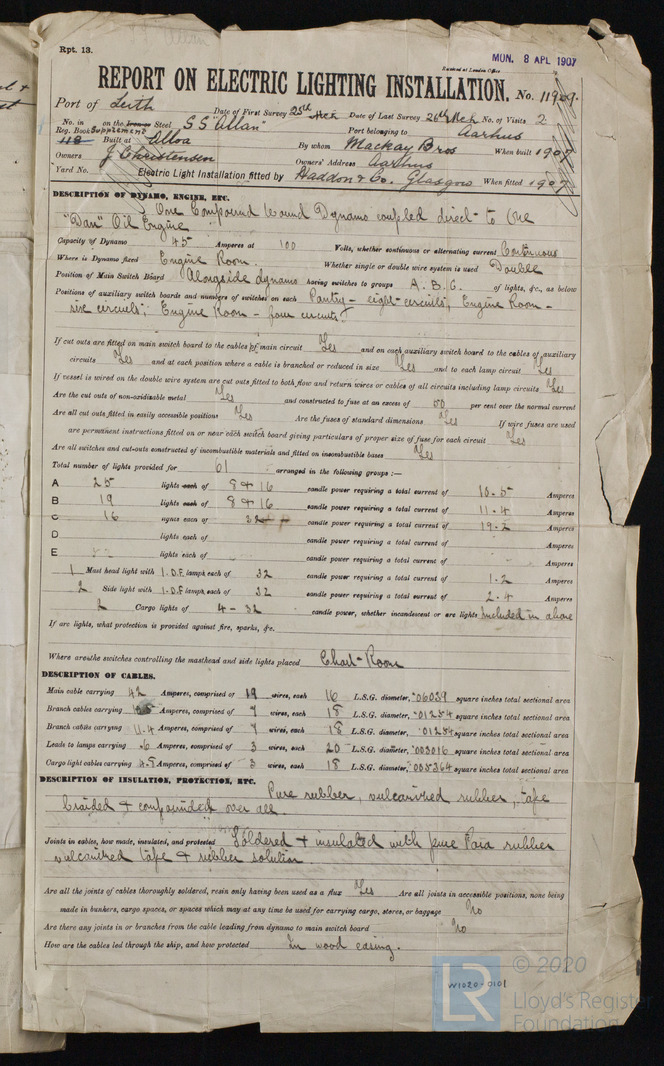 Rpt. 13.
MON. 8 APL 1907
Received at London Office
REPORT ON ELECTRIC LIGHTING INSTALLATION. No. 11909.
Port of Leith Date of First Survey 25th Mch Date of Last Survey 26th Mch No. of Visits 2
No. in on the Iron or Steel S S "Allan" Port belonging to Aarhus
Reg. Book Supplement 118 Built at Alloa By whom Mackay Bros When built 1907
Owners J Christensen Owners' Address Aarhus
Yard No. Electric Light Installation fitted by Haddon & Co. Glasgow When fitted 1907
DESCRIPTION OF DYNAMO, ENGINE, ETC.
One Compound Wound Dynamo coupled direct to One
"Dan" Oil Engine
Capacity of Dynamo 45 Amperes at 100 Volts, whether continuous or alternating current Continuous
Where is Dynamo fixed Engine Room. Whether single or double wire system is used Double
Position of Main Switch Board Alongside dynamo having switches to groups A. B. C. of lights, &c., as below
Positions of auxiliary switch boards and numbers of switches on each Pantry – eight circuits, Engine Room –
six circuits; Engine Room – four circuits
If cut outs are fitted on main switch board to the cables of main circuit Yes and on each auxiliary switch board to the cables of auxiliary
circuits Yes and at each position where a cable is branched or reduced in size Yes and to each lamp circuit Yes
If vessel is wired on the double wire system are cut outs fitted to both flow and return wires or cables of all circuits including lamp circuits Yes
Are the cut outs of non-oxidizable metal Yes and constructed to fuse at an excess of 50 per cent over the normal current
Are all cut outs fitted in easily accessible positions Yes Are the fuses of standard dimensions Yes If wire fuses are used
are permanent instructions fitted on or near each switch board giving particulars of proper size of fuse for each circuit Yes
Are all switches and cut-outs constructed of incombustible materials and fitted on incombustible bases Yes
Total number of lights provided for 61 arranged in the following groups :—
A 25 lights each of 8 & 16 candle power requiring a total current of 10.5 Amperes
B 19 lights each of 8 & 16 candle power requiring a total current of 11.4 Amperes
C 16 lights each of 32 candle power requiring a total current of 19.2 Amperes
D lights each of candle power requiring a total current of Amperes
E lights each of candle power requiring a total current of Amperes
1 Mast head light with 1. D.F. lamps each of 32 candle power requiring a total current of 1.2 Amperes
2 Side light with 1. D.F. lamps each of 32 candle power requiring a total current of 2.4 Amperes
2 Cargo lights of 4 – 32 candle power, whether incandescent or arc lights Included in above
If arc lights, what protection is provided against fire, sparks, &c.
Where are the switches controlling the masthead and side lights placed Chart-Room
DESCRIPTION OF CABLES.
Main cable carrying 42 Amperes, comprised of 19 wires, each 16 L.S.G. diameter, .06039 square inches total sectional area
Branch cables carrying Amperes, comprised of 7 wires, each 18 L.S.G. diameter, .01254 square inches total sectional area
Branch cables carrying 11.4 Amperes, comprised of 7 wires, each 18 L.S.G. diameter, .01254 square inches total sectional area
Leads to lamps carrying .6 Amperes, comprised of 3 wires, each 20 L.S.G. diameter, .003016 square inches total sectional area
Cargo light cables carrying 4.8 Amperes, comprised of 3 wires, each 18 L.S.G. diameter, .005364 square inches total sectional area
DESCRIPTION OF INSULATION, PROTECTION, ETC.
Pure rubber, vulcanized rubber, tape
braided & compounded over all.
Joints in cables, how made, insulated, and protected Soldered & insulated with pure Para rubber
vulcanized tape & rubber solution.
Are all the joints of cables thoroughly soldered, resin only having been used as a flux Yes Are all joints in accessible positions, none being
made in bunkers, cargo spaces, or spaces which may at any time be used for carrying cargo, stores, or baggage No
Are there any joints in or branches from the cable leading from dynamo to main switch board No
How are the cables led through the ship, and how protected In wood casing.
W1020-0101
LR
© 2020
Lloyd's Register
Foundation